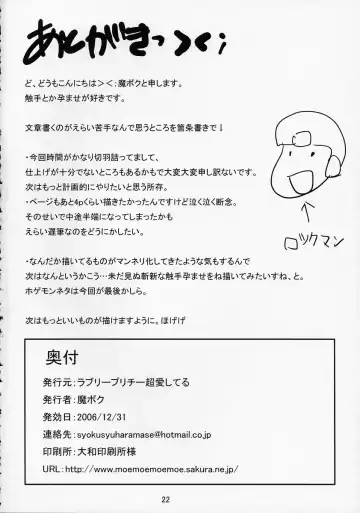 あとがきっ＞＜；
ど、どうもこんにちは＞＜；魔ボクと申します。
触手とか孕ませが好きです。
文章書くのがえらい苦手なんで思うところを箇条書きで！
・今回時間がかなり切羽詰ってまして、
仕上げが十分でないところもあるかもで大変大変申し訳ないです。
次はもっと計画的にやりたいと思う所存。
・ページもあと4pくらい描きたかったんですけど泣く泣く断念。
そのせいで中途半端になってしまったかも
えらい遅筆なのをどうにかしたい。
ロックマン
・なんだか描いてるものがマンネリ化してきたような気もするんで
次はなんというかこう…未だ見ぬ斬新な触手孕ませをね描いてみたいすね、と。
ホゲモンネタは今回が最後かしら。
次はもっといいものが描けますように。ほげげ
奥付
発行元：ラブリープリチー超愛してる
発行者：魔ボク
発効日：2006/12/31
連絡先：syokusyuharamase@hotmail.co.jp
印刷所：大和印刷所様
URL：http://www.moemoemoemoe.sakura.ne.jp/
22